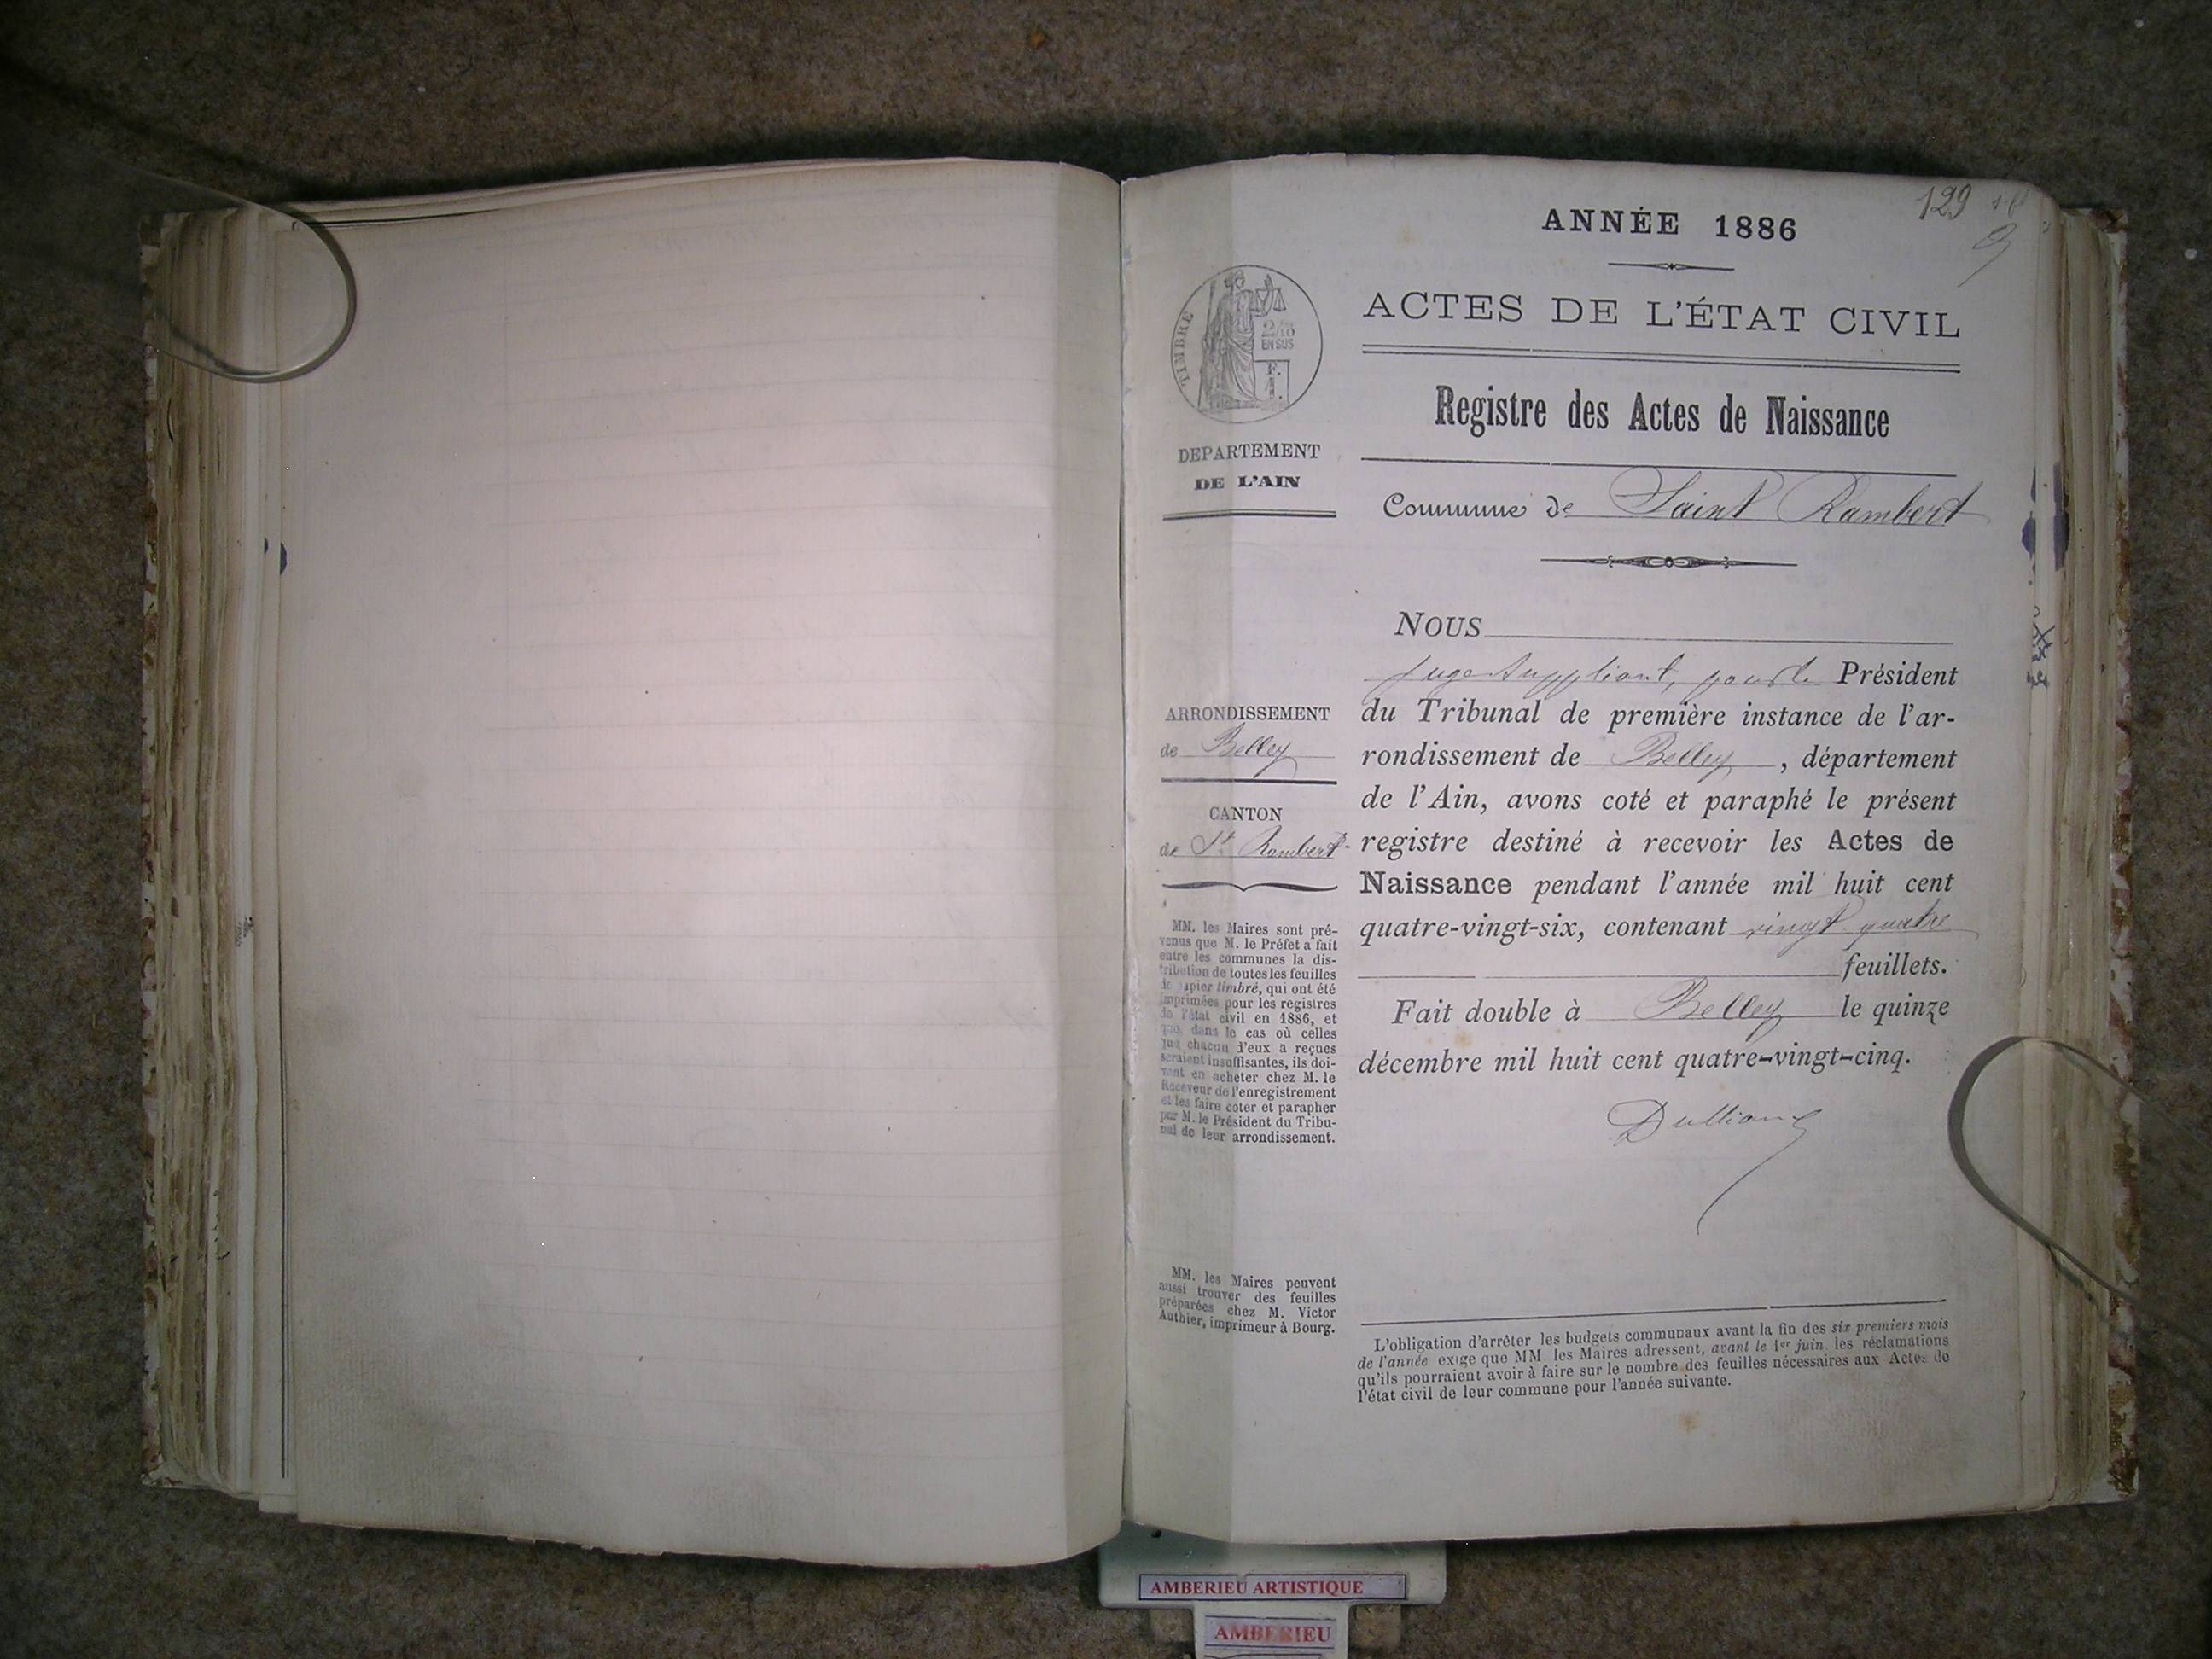 129
ANNÉE 1886
ACTES DE L'ÉTAT CIVIL
Registre des Actes de Naissance
Commune de Saint Rambert
TIMBRE
2/10
EN SUS
F.
1.
DEPARTEMENT
DE L'AIN
ARRONDISSEMENT
de Belley
CANTON
de St Rambert
MM. les Maires sont pré-
venus que M. le Préfet a fait
entre les communes la dis-
tribution de toutes les feuilles
de papier timbré, qui ont été
imprimées pour les registres
de l'état civil en 1886, et
que, dans le cas où celles
que chacun d'eux a reçues
seraient insuffisantes, ils doi-
vent en acheter chez M. le
Receveur de l'enregistrement
et les faire coter et parapher
par M. le Président du Tribu-
nal de leur arrondissement.
MM. les Maires peuvent
aussi trouver des feuilles
préparées chez M. Victor
Authier, imprimeur à Bourg.
NOUS
Juge Suppléant, pour le Président
du Tribunal de première instance de l'ar-
rondissement de Belley, département
de l'Ain, avons coté et paraphé le présent
registre destiné à recevoir les Actes de
Naissance pendant l'année mil huit cent
quatre-vingt-six, contenant vingt quatre
feuillets.
Fait double à Belley le quinze
décembre mil huit cent quatre-vingt-cinq.
L'obligation d'arrêter les budgets communaux avant la fin des six premiers mois
de l'année exige que MM. les Maires adressent, avant le 1er juin, les réclamations
qu'ils pourraient avoir à faire sur le nombre des feuilles nécessaires aux Actes de
l'état civil de leur commune pour l'année suivante.
AMBERIEU ARTISTIQUE
AMBERIEU